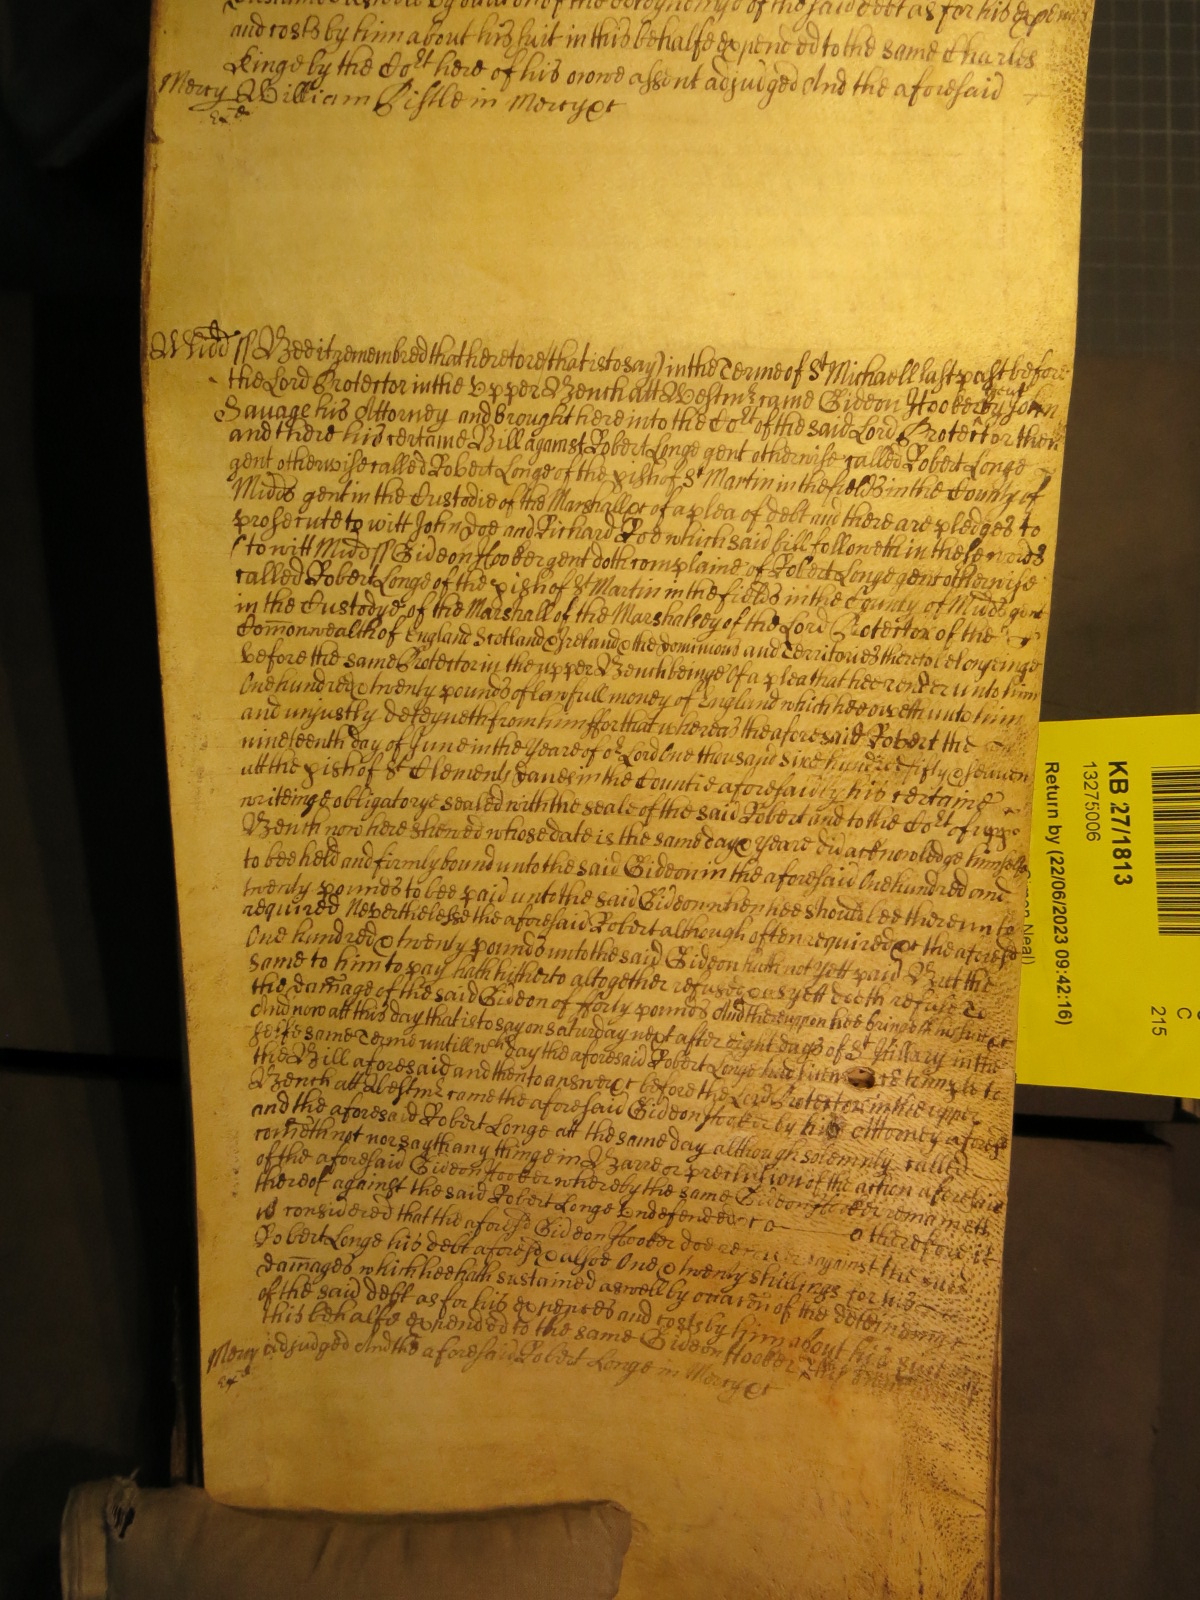 and costs by him about his suit in this behalfe expended to the same Charles
Kinge by the Cort here of his owne assent adjudged And the aforesaid
Mercy William Pistle in Mercy &c
Midd ss Bee it remembred that heretofore (that is to say) in the Terme of St Michaell last past before
the Lord Protector in the Upper Bench att Westmr came Gideon Hooker gent by John
Savage his Attorney and brought here into the Cort of the said Lord Protector then
and there his certaine Bill against Robert Longe gent otherwise called Robert Longe
gent otherwise called Robert Longe of the pish of St Martin in the fields in the County of
Midds gent in the Custodie of the Marshall &c of a plea of debt and there are pledges to
prosecute to witt John Doe and Richard Roe which said bill followeth in these words
(to witt Midd ss Gideon Hooker gent doth complaine of Robert Longe gent otherwise
called Robert Longe of the pish of St Martin in the fields in the County of Midds gent
in the Custodye of the Marshall of the Marshalsey of the Lord Protector of the
Comonwealth of England Scotland & Ireland & the Dominions and Territories thereto belonginge
before the same Protector in the upper Bench beinge Of a plea that hee render unto him
One hundred & twenty pounds of lawfull money of England which hee oweth unto him
and unjustly deteyneth from him For that whereas the aforesaid Robert the
nineteenth day of June in the Yeare of or Lord One thousand sixe hundred fifty & seaven
att the pish of St Clements Danes in the Countie aforesaid by his certaine
writeinge obligatorye sealed with the seale of the said Robert and to the Cort of upper
Bench now here shewed whose date is the same day & Yeare did acknowledge himselfe
to bee held and firmly bound unto the said Gideon in the aforesaid One hundred and
twenty pounds to bee paid unto the said Gideon when hee should bee thereunto
required Neverthelesse the aforesaid Robert although often required &c the aforesd
One hundred & twenty pounds unto the said Gideon hath not yett paid But the
same to him to pay hath hitherto altogether refused & as yett doeth refuse To
the damage of the said Gideon of fforty pounds And thereupon hee bringeth his suite &c
And now att this day that is to say on Saturday next after eight dayes of St Hillary in the
selfe same Terme untill wch day the aforesaid Robert Longe had licence to imparle to
the Bill aforesaid and then to answer &c before the Lord Protector in the upper
Bench att Westmr came the aforesaid Gideon Hooker by his Attorney aforesd
and the aforesaid Robert Longe att the same day although solemnly called
cometh not nor sayth any thinge in Barre or preclusion of the action aforesaid
of the aforesaid Gideon Hooker whereby the same Gideon Hooker remaineth
thereof against the said Robert Longe Undefended &c Therefore it
is considered that the aforesd Gideon Hooker doe recover against the said
Robert Longe his debt aforesd & alsoe One & twenty shillings for his
damages which hee hath sustained aswell by occacon of the deteininge
of the said debt as for his expences and costs by him about his suit in
this behalfe expended to the same Gideon Hooker
Mercy adjudged And the aforesaid Robert Longe in Mercy &c
KB 27/1813
13275006
Return by (22/06/2023 09:42:16)
Neal)
C
215